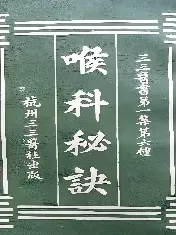 三三醫書第一集第六種
喉科秘訣
杭州三三醫社出版